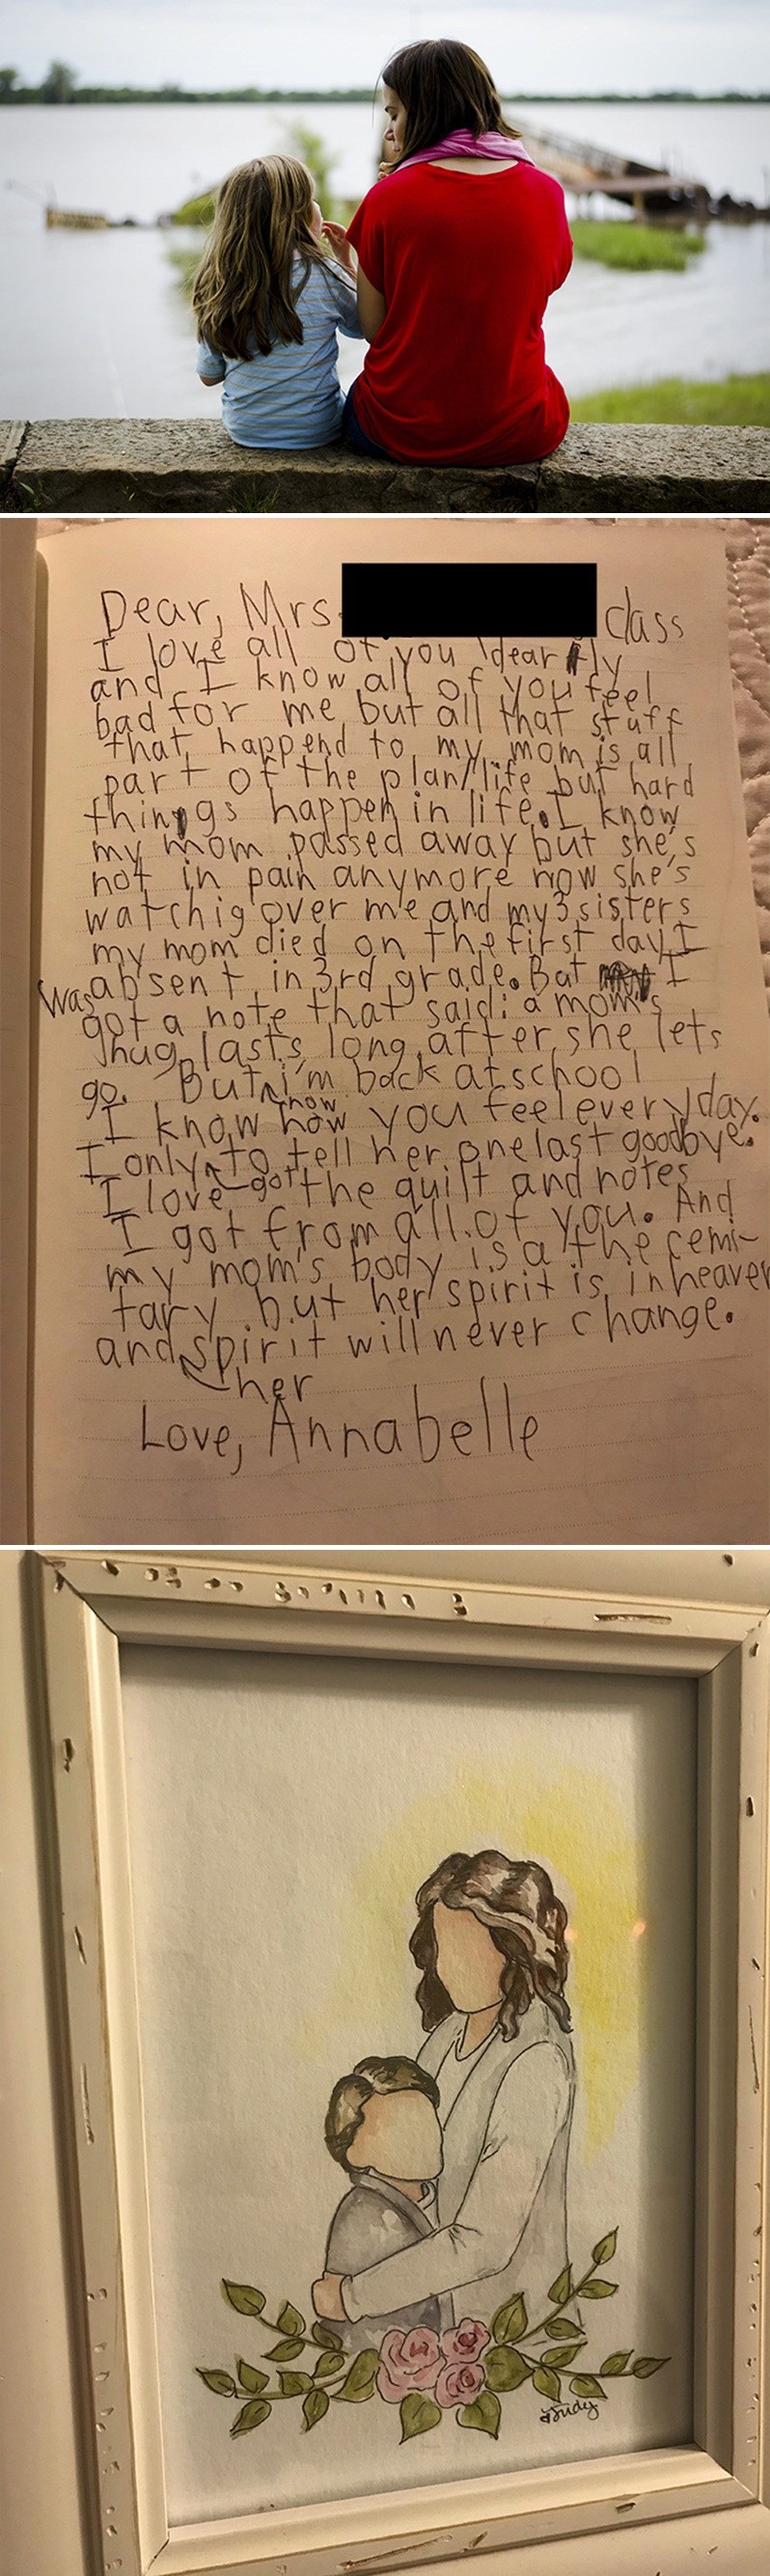 Dear, Mrs. class
I love all of you dearfly
and I know all of you feel
bad for me, but all that stuff
that happend to my mom is all
part of the plan/life but hard
things happen in life. I know
my mom passed away but she's
not in pain anymore now she's
watchig over me and my 3 sisters
my mom died on the first day I
was absent in 3rd grade. But I
got a note that said: a mom's
hug lasts long after she lets
go. But now i'm back at school
I know how you feel everyday.
I only got to tell her one last goodbye.
I love the quilt and notes
I got from all of you. And
my mom's body is a the cemi-
tary but her spirit is in heaven
and her spirit will never change.
Love, Annabelle